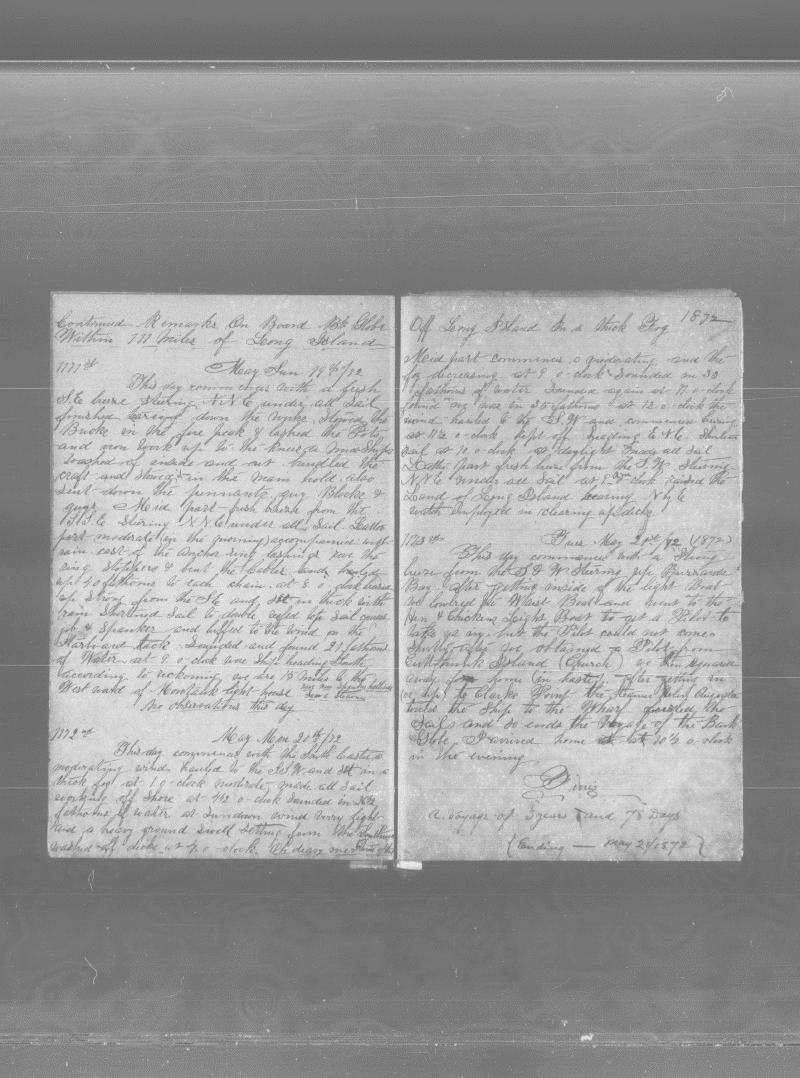 Continued Remarks On Board Bk Globe
Within 177 Miles of Long Island
1171st May Sun 19th/72
This day commences with a fresh
S.E breeze Steering N.N.E under all Sail
finished down the Stowed the
Bucke in the fore peak & lashed the
and iron work up to the
washed of inside and out bundled the
craft and Stowed in the main hold also
Sent down the pennants guy Blocks &
guys. Mid part fresh breeze from the
S.S.E Stering N.N.E under all Sail. Latter
part moderate in the morning accompanied with
rain cast of the anchor ring lashings rove the
ring Stoppers & bent the Cables
up 40 fathoms to each chain at 8 o clock
up Strong from the S.E and Set in thick with
rain Shortened Sail to double reefed top Sail courses
jib & Spanker and luffed to the wind on the
Starboard tack Sounded and found 21 fathoms
of Water at 9 o clock wore Ship heading South
according to reckoning we are 15 miles to the
West ward of Montauk light house
No observations this day
1172nd May Mon 20th/72
This day commences with the South Easter
moderating wind hauled to the S.S.W and Set in a
thick fog at 1 o clock moderate made all Sail
working off Shore at 4½ o clock Sounded in
fathoms of water at Sundown wind very light
and a heavy ground Swell Setting from the
washed of decks at 7 o clock. We
Off Long Island In a thick Fog 1872
Meid part commences moderating and the
fog decreasing at 9 o clock Sounded in 30
fathoms of water Sounded again at 11 o clock
found we was in 25 fathoms at 12 o clock the
wind hauled to the S.W and commenced
at 12½ o clock kept off heading E.N.E. Shortend
Sail at 10 o clock at daylight made all Sail
Latter part fresh breeze from the S.W. Stering
N.N.E under all Sail at o clock raised the
Land of Long Island bearing N by E
watch employed in clearing up decks
1173rd Tues May 21st/72 (1872)
This day commences with a Strong
breeze from the S & W Stering up Buzzards
Bay after getting inside of the light Boat
we lowered the Waist Boat and went to the
Hen & Chickens Light Boat to get a Pilot to
take us in but the Pilot could not come
Shortly after we obtained a Pilot from
Cuttyhunk Island (Church) we then squared
away for home (in haste) After getting in
up to Clarks Point the Steamer Helen Augusta
towed the Ship to the Wharf furled the
Sails and so ends the Voyage of the Bark
Globe I arrived home at 10½ o clock
in the evening
Finis
A. voyage of 3 years and 78 Days
{ Ending — May 21/1872 }